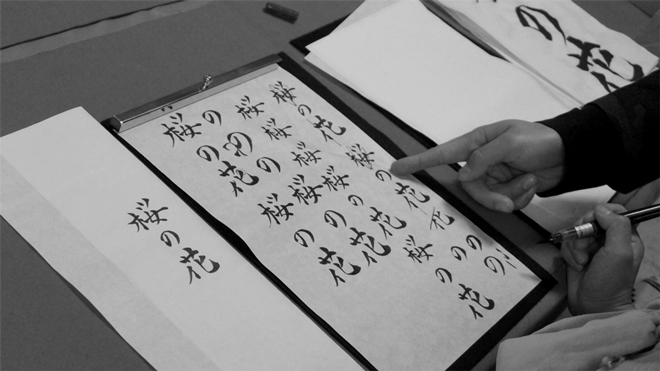 の花
桜の花桜の花花のの
桜桜桜桜の花桜の花
ののの桜の花
桜の花桜の花
桜の花